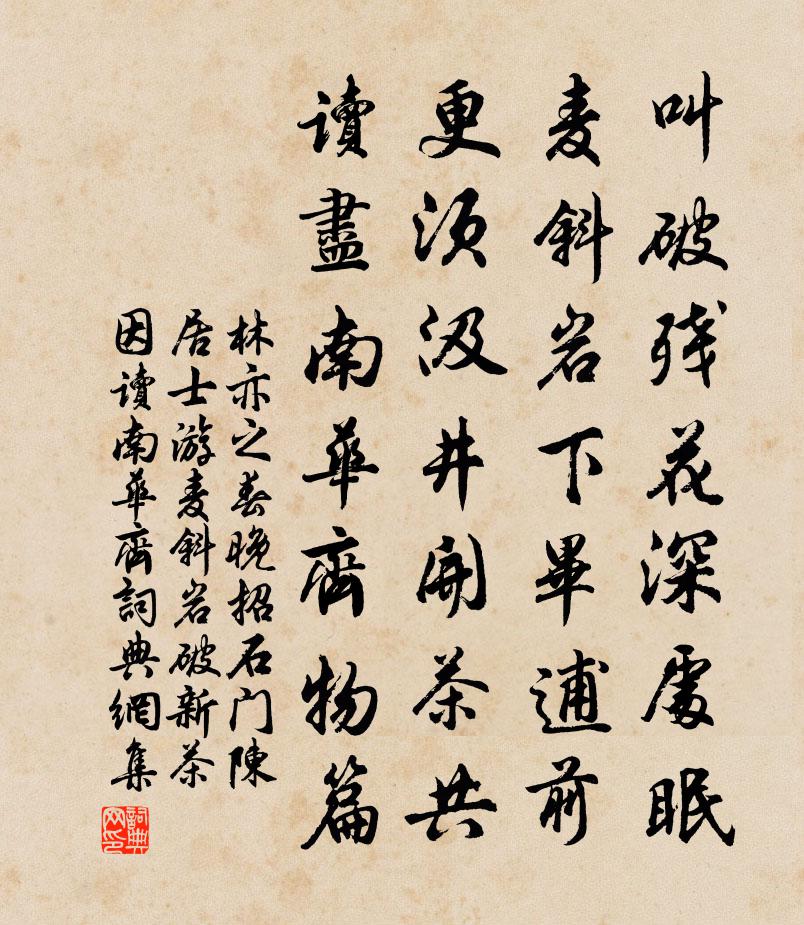 叫破残花深處眠
麦斜岩下畢逋前
更須汲井開茶共
讀盡南華齊物篇
林亦之春晚招石门陳
居士游麦斜岩破新茶
因讀南華齊詞典網集
詞典
网印